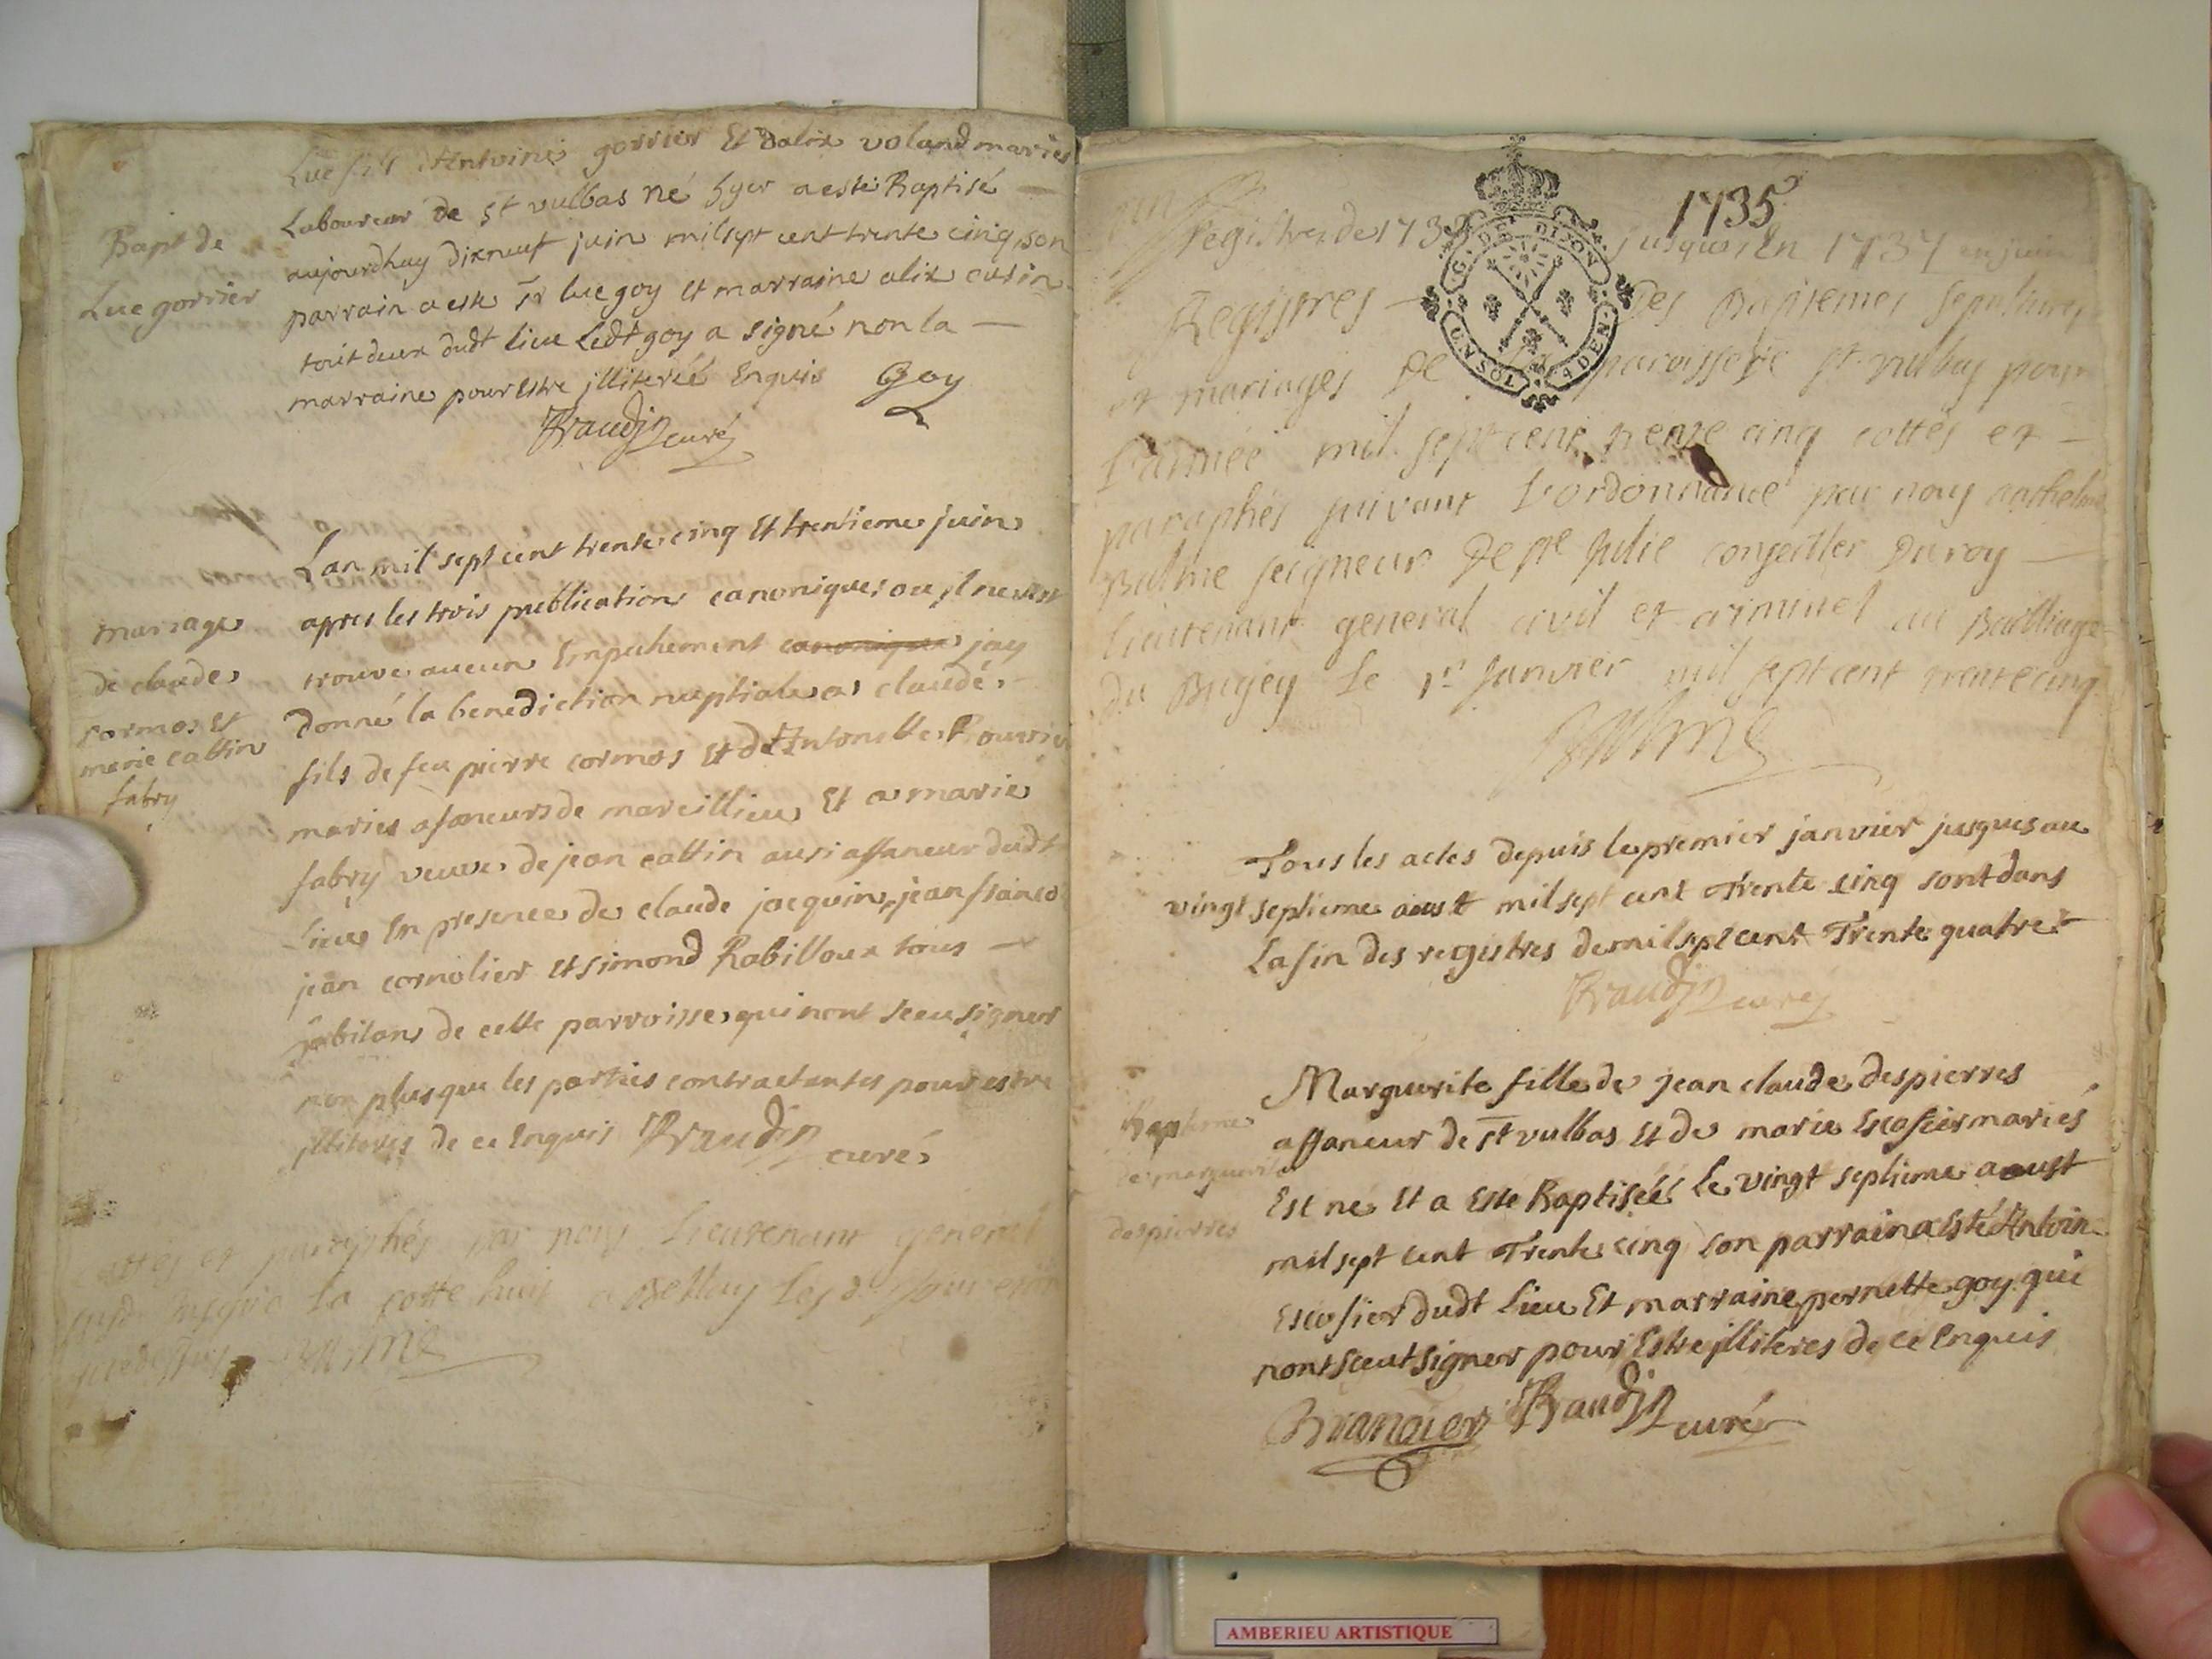 Luc fils dAntoine gorrier Et dalix voland mariés
Laboureur de st vulbas né hyer a esté Baptisé
aujourdhuy dixneuf juin mil sept cent trente cinq, son
parrain a esté sr luc goy et marraine alix cusin
tout deux dudt lieu Ledt goy a signé non la
marraine pour Estre jlliterée Enquis Goy
Baudin curé
Bapt de
Luc gorrier
Lan mil sept cent trente cinq Et trentieme juin
apres les trois publication canoniques ou jl ne
trouve aucun Empechement canonique jay
donné la benediction nuptiale a claude
fils de feu pierre cormos Et dAntonette
maries afaneurs de mareillieu Et a marie
fabry veuve de jean cattin ausi affaneur dudt
Lieu En presence de claude jacquin, jean
jean cornolier Et simond Rabilloux tous
jabitans de cette parroisse qui nont sceu signer
non plus que les parties contractantes pour estre
jlliteres de ce Enquis Baudin curé
mariage
de claude
cormos Et
marie cattin
fabry
et paraphés par nous Lieutenant general
la cotte huit a Bellay Les
Balme
1735
Registres de 1735 jusques En 1737 en juin
Registres des Baptemes sepultures
et mariages De La paroisse De st vulbas pour
L'année mil sept cent trente cinq cottés et
paraphés suivant L'ordonnance par nous anthelme
Balme seigneur De ste Julie conseiller Du roy
lieutenant general civil et criminel au Bailliage
du Bugey Le 1er Janvier mil sept cent trente cinq
Balme
G. DE DIJON
4 DEN.
UNSOL
Tous les actes depuis le premier janvier jusques au
vingt septieme aoust mil sept cent Trente cinq sont dans
La fin des registres de mil sept cent Trente quatre
Baudin curé
Marguerite fille de jean claude despierres
affaneur de st vulbas Et de marie Escofier mariés
Est né Et a Esté Baptisée Le vingt septieme aoust
mil sept cent Trente cinq son parrain a Esté Antoin
Escofier dudt Lieu Et marraine pernette goy qui
nont sceut signer pour Estre jlliteres de ce Enquis
Brangier Baudin curé
Bapteme
de marguerite
despierres
AMBERIEU ARTISTIQUE